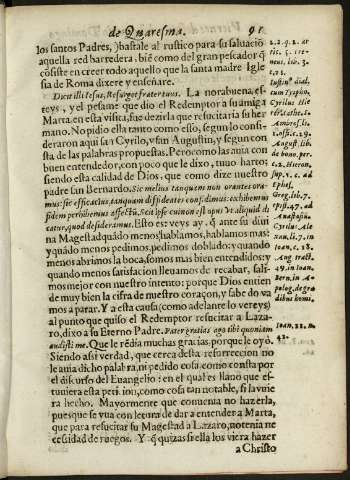 de Quaresma. 91
los santos Padres, )bastale al rustico para su saluació
aquella red barredera, biē como del gran pescador q̃
cõsiste en creer todo aquello que la santa madre Igle
sia de Roma dixere y enseñare.
Dicit illi Iesus, Resurget frater tuus. La norabuena, es-
teys, y el pesame que dio el Redemptor a su amiga
Marta, en esta visita, fue dezirla que resucitaria su her
mano. No pidio ella tanto como esso, segun lo consi-
deraron aqui san Cyrilo, y san Augustin, y segun con
sta de las palabras propuestas. Pero como las auia con
buen entendedor, con poco que le dixo, tuuo harto:
siendo esta calidad de Dios, que como dize nuestro
padre san Bernardo. Sic melius tanquam non orantes ora-
mus: sic efficacius, tanquam diffidentes confidimus: exhibemus
fidem perhibemus affectū. Scit ipse cui non est opus vt aliquid di-
catur, quod desideramus. Esto es: veys ay, q̃ ante su diui
na Magestad quãdo menos hablamos, hablamos mas:
y quãdo menos pedimos, pedimos doblado: y quando
menos abrimos la boca, somos mas bien entendidos: y
quando menos satisfacion lleuamos de recabar, sali-
mos mejor con nuestro intento: porque Dios entien
de muy bien la cifra de nuestro coraçon, y sabe do va
mos a parar. Y a esta causa (como adelante lo vereys)
al punto que quiso el Redemptor resucitar a Laza-
ro, dixo a su Eterno Padre. Pater gratias ago tibi quoniam
audisti me. Que le rēdia muchas gracias, porque le oyó.
Siendo assi verdad, que cerca desta resurreccion no
le auia dicho palabra, ni pedido cosa, como consta por
el discurso del Euangelio: en el qual es llano que es-
tuuiera esta peticion, como cosa tan notable, si la uuie
ra hecho. Mayormente que conuenia no hazerla,
puesque se yua con letura de dar a entender a Marta,
que para resucitar su Magestad a Lazaro, no tenia ne
cessidad de ruegos. Y q̃ quizas si ella los viera hazer
a Christo
2. 2. q. 2. ar
Cyrilus Hie
Ambros. li.
1. offi. c. 29.
August. lib.
de bono. per.
c. 2. Hieron.
Ephes.
Greg. lib. 7.
Cyrilus Ale
xan. li. 7. in
Ioan. c. 18.
Aug. tract.
49. in Ioan.
Bern. in A-
Ioan. 11. n.
42.